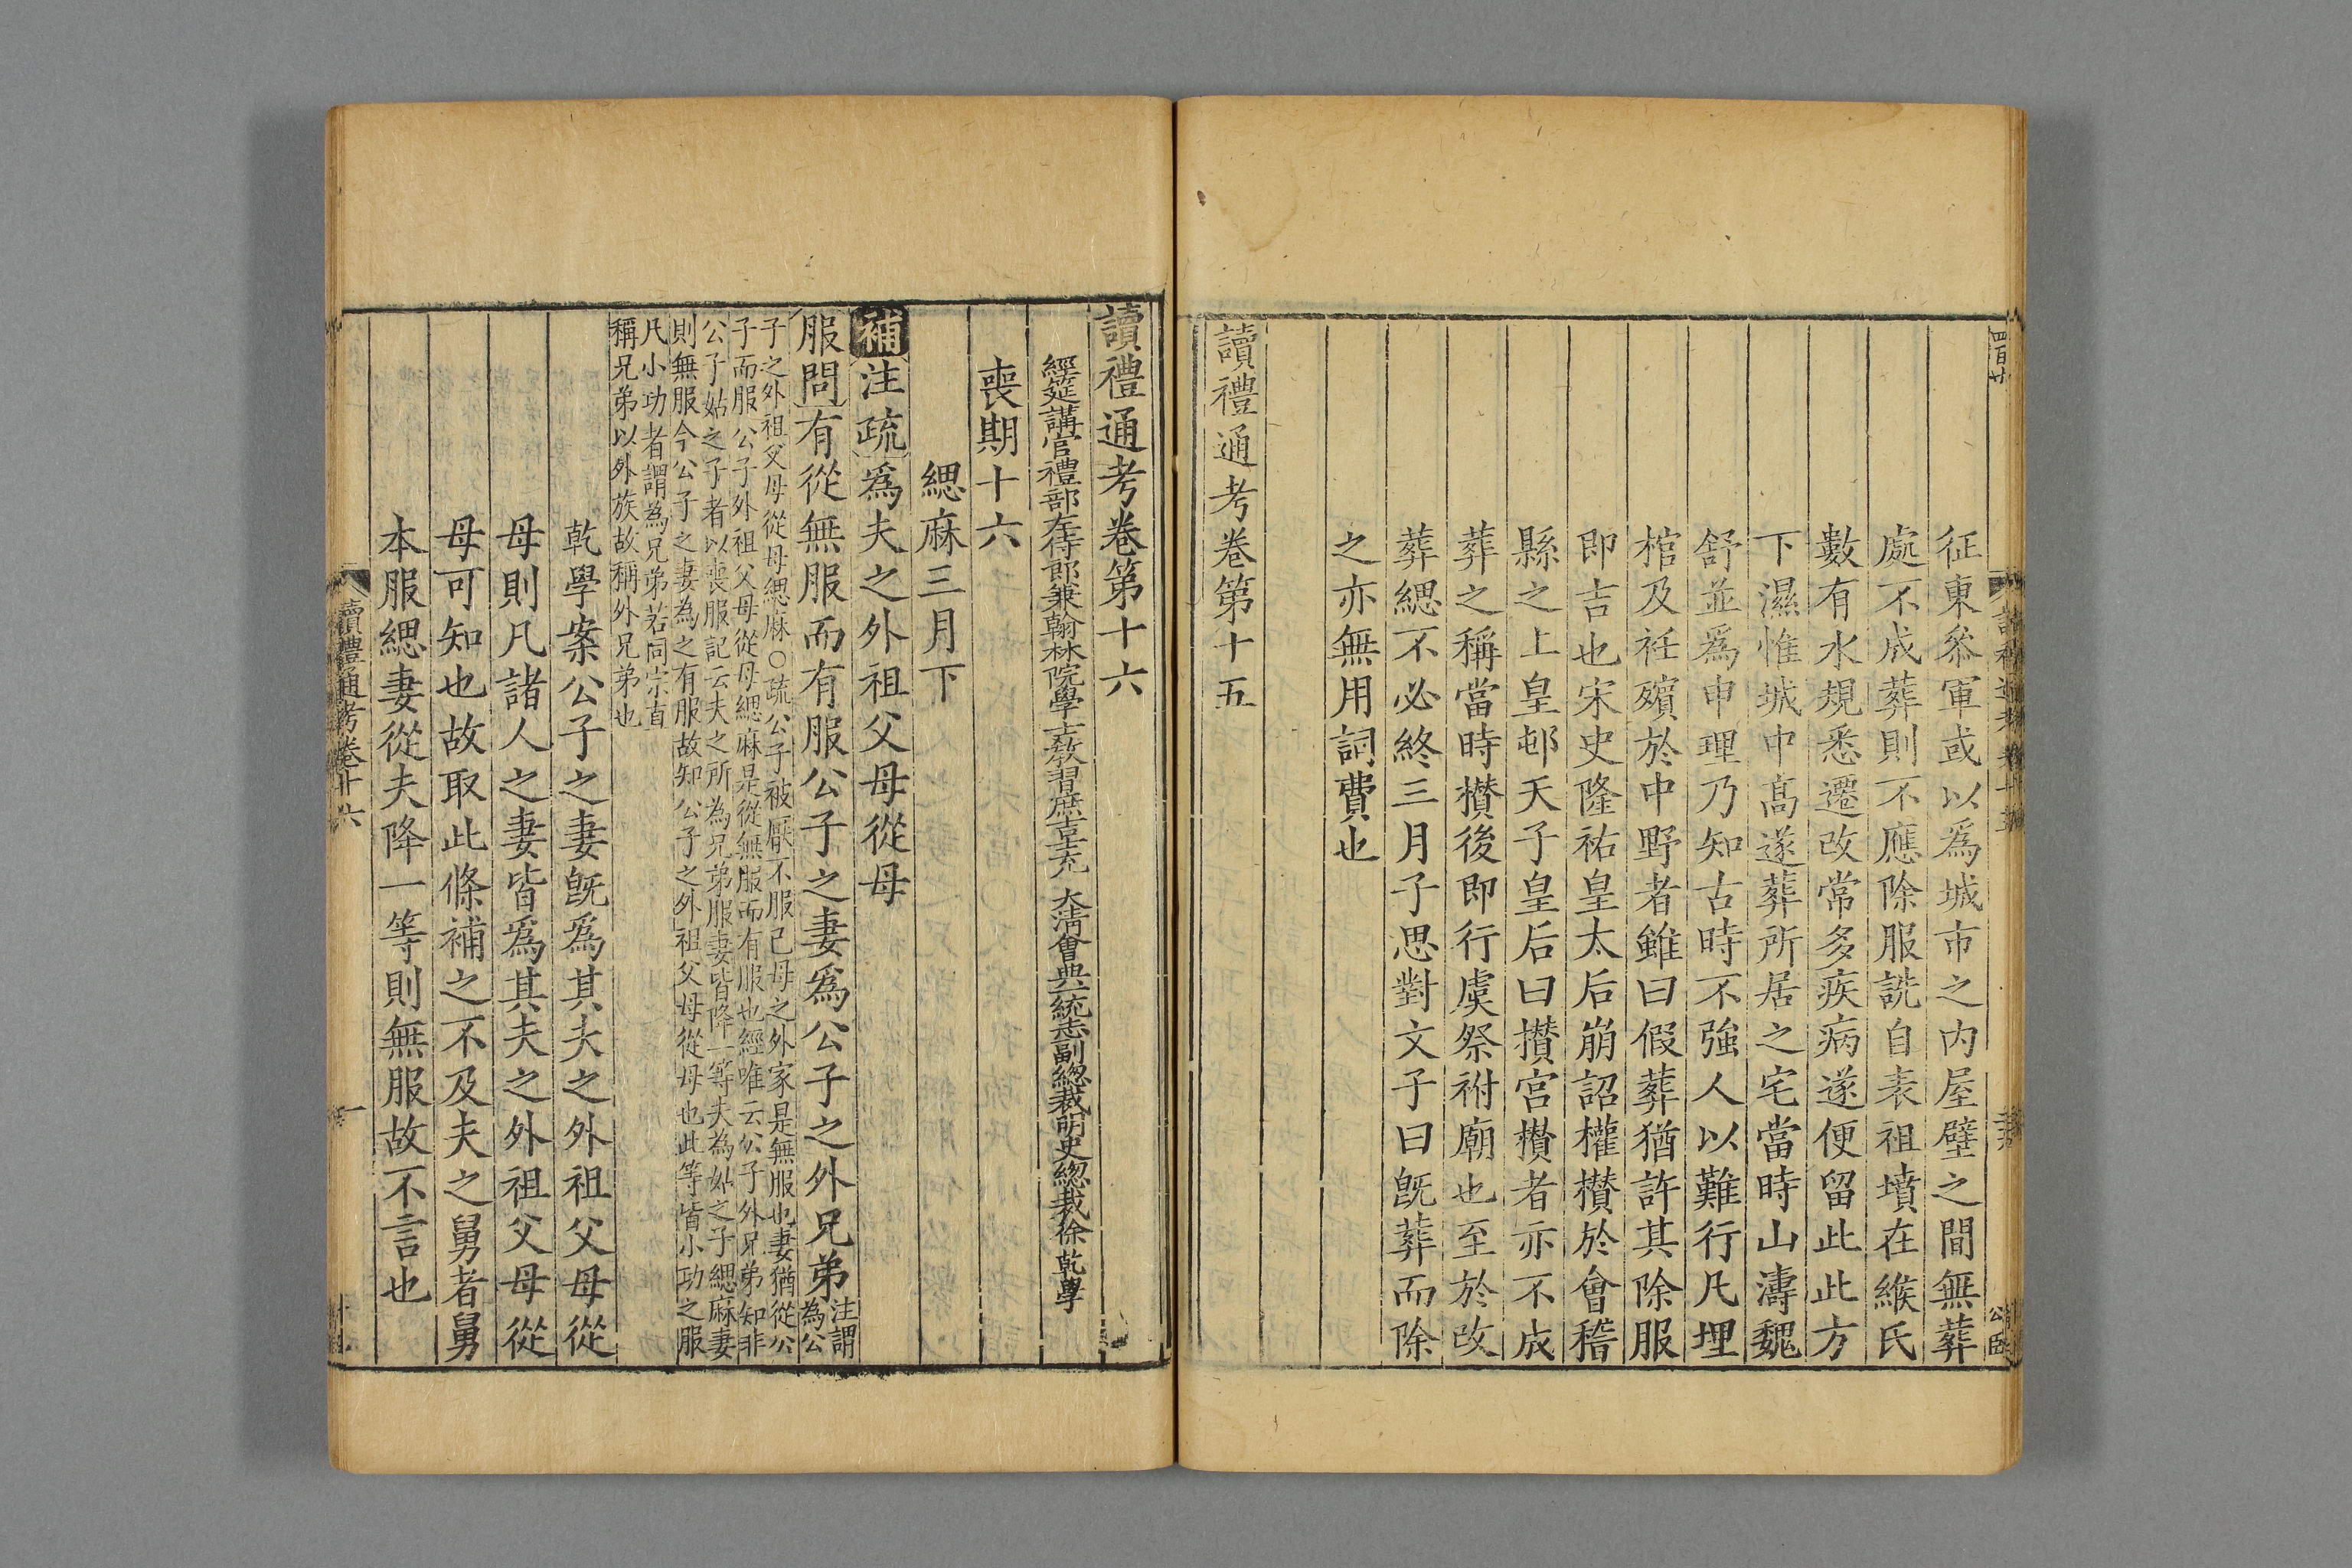 四百廿
征東叅軍或以爲城市之内屋壁之間無葬
處不成葬則不應除服詵自表祖墳在緱氏
數有水規悉遷改常多疾病遂便留此此方
下濕惟城中高遂葬所居之宅當時山濤魏
舒並爲申理乃知古時不強人以難行凡埋
棺及衽殯於中野者雖曰假葬猶許其除服
即吉也宋史隆祐皇太后崩詔權攅於會稽
縣之上皇邨天子皇后曰攅宮攅者亦不成
葬之稱當時攅後即行虞祭祔廟也至於改
葬緦不必終三月子思對文子曰旣葬而除
之亦無用詞費也
讀禮通考卷第十五
讀禮通考卷第十六
經筵講官禮部左侍郎兼翰林院學士教習庶吉士充 大清會典一統志副總裁明史總裁徐乾學
喪期十六
緦麻三月下
補注疏爲夫之外祖父母從母
服問有從無服而有服公子之妻爲公子之外兄弟注謂為公
子之外祖父母從母緦麻○疏公子被厭不服己母之外家是無服也妻猶從公
子而服公子外祖父母從母緦麻是從無服而有服也經唯云公子外兄弟知非
公子姑之子者以喪服記云夫之所為兄弟服妻皆降一等夫為姑之子緦麻妻
則無服今公子之妻為之有服故知公子之外祖父母從母也此等皆小功之服
凡小功者謂為兄弟若同宗直
稱兄弟以外族故稱外兄弟也
乾學案公子之妻旣爲其夫之外祖父母從
母則凡諸人之妻皆爲其夫之外祖父母從
母可知也故取此條補之不及夫之舅者舅
本服緦妻從夫降一等則無服故不言也
讀禮通考卷十六
一